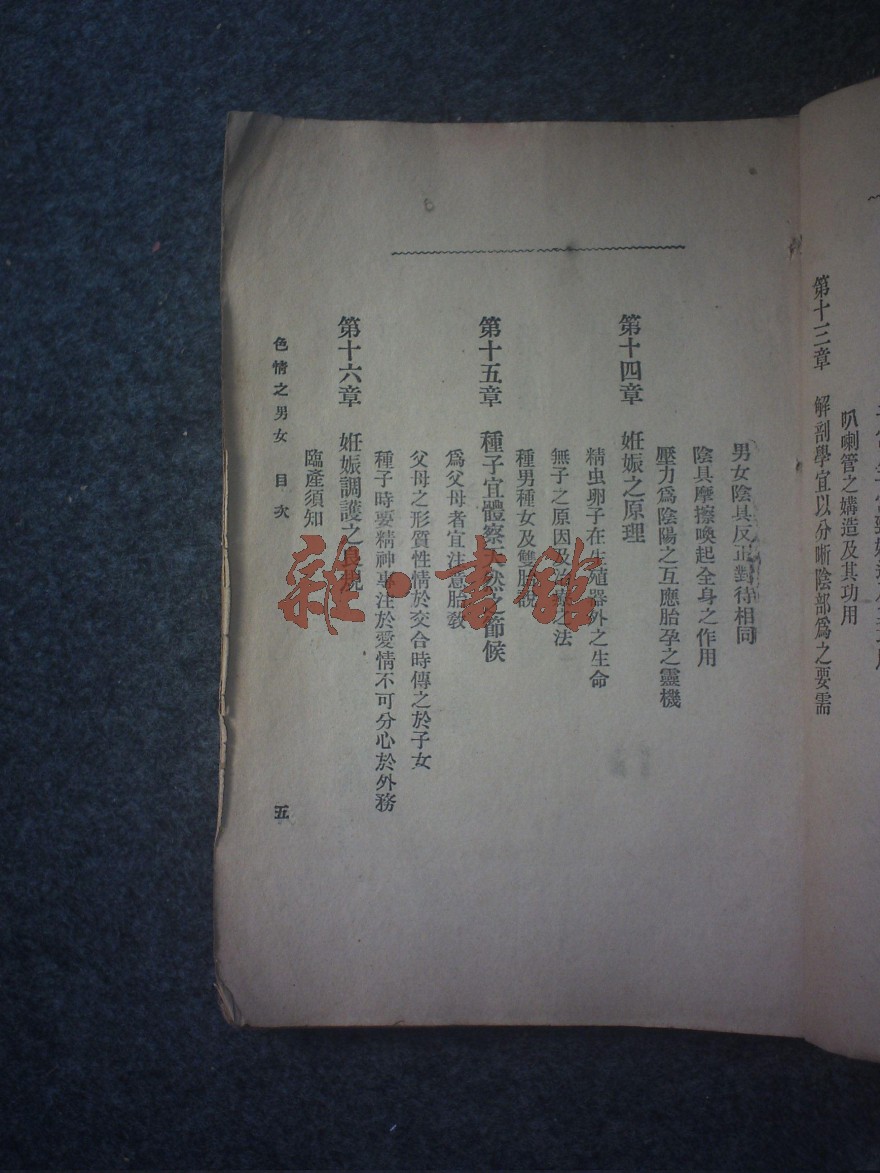 叭喇管之媾造及其功用
第十三章 解剖學宜以分晰陰部爲之要需
男女陰具反正對待相同
陰具摩擦喚起全身之作用
壓力爲陰陽之互應胎孕之靈機
第十四章 姙娠之原理
精虫卵子在生殖器外之生命
無子之原因及之法
種男種女及雙胎說
第十五章 種子宜體察天然之節候
爲父母者宜注意胎教
父母之形質性情於交合時傳之於子女
種子時要精神專注於愛情不可分心於外務
第十六章 姙娠調護之良規
臨產須知
色情之男女 目次
五
雜·書館